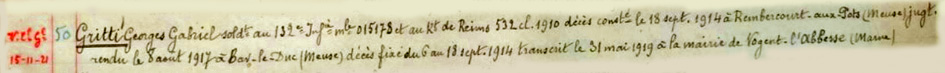 v. et gé 50 Gritti Georges Gabriel soldt au 132e Infie mle 01517S et au Rt de Reims 532 cl. 1910 décès constté le 18 sept. 1914 à Rembercourt-aux-Pots (Meuse) jugt.
15-11-21 rendu le 8 aout 1917 à Bar-le-Duc (Meuse) décès fixé du 6 au 18 sept. 1914 transcrit le 31 mai 1919 à la mairie de Vogent-l'Abbesse (Marne)